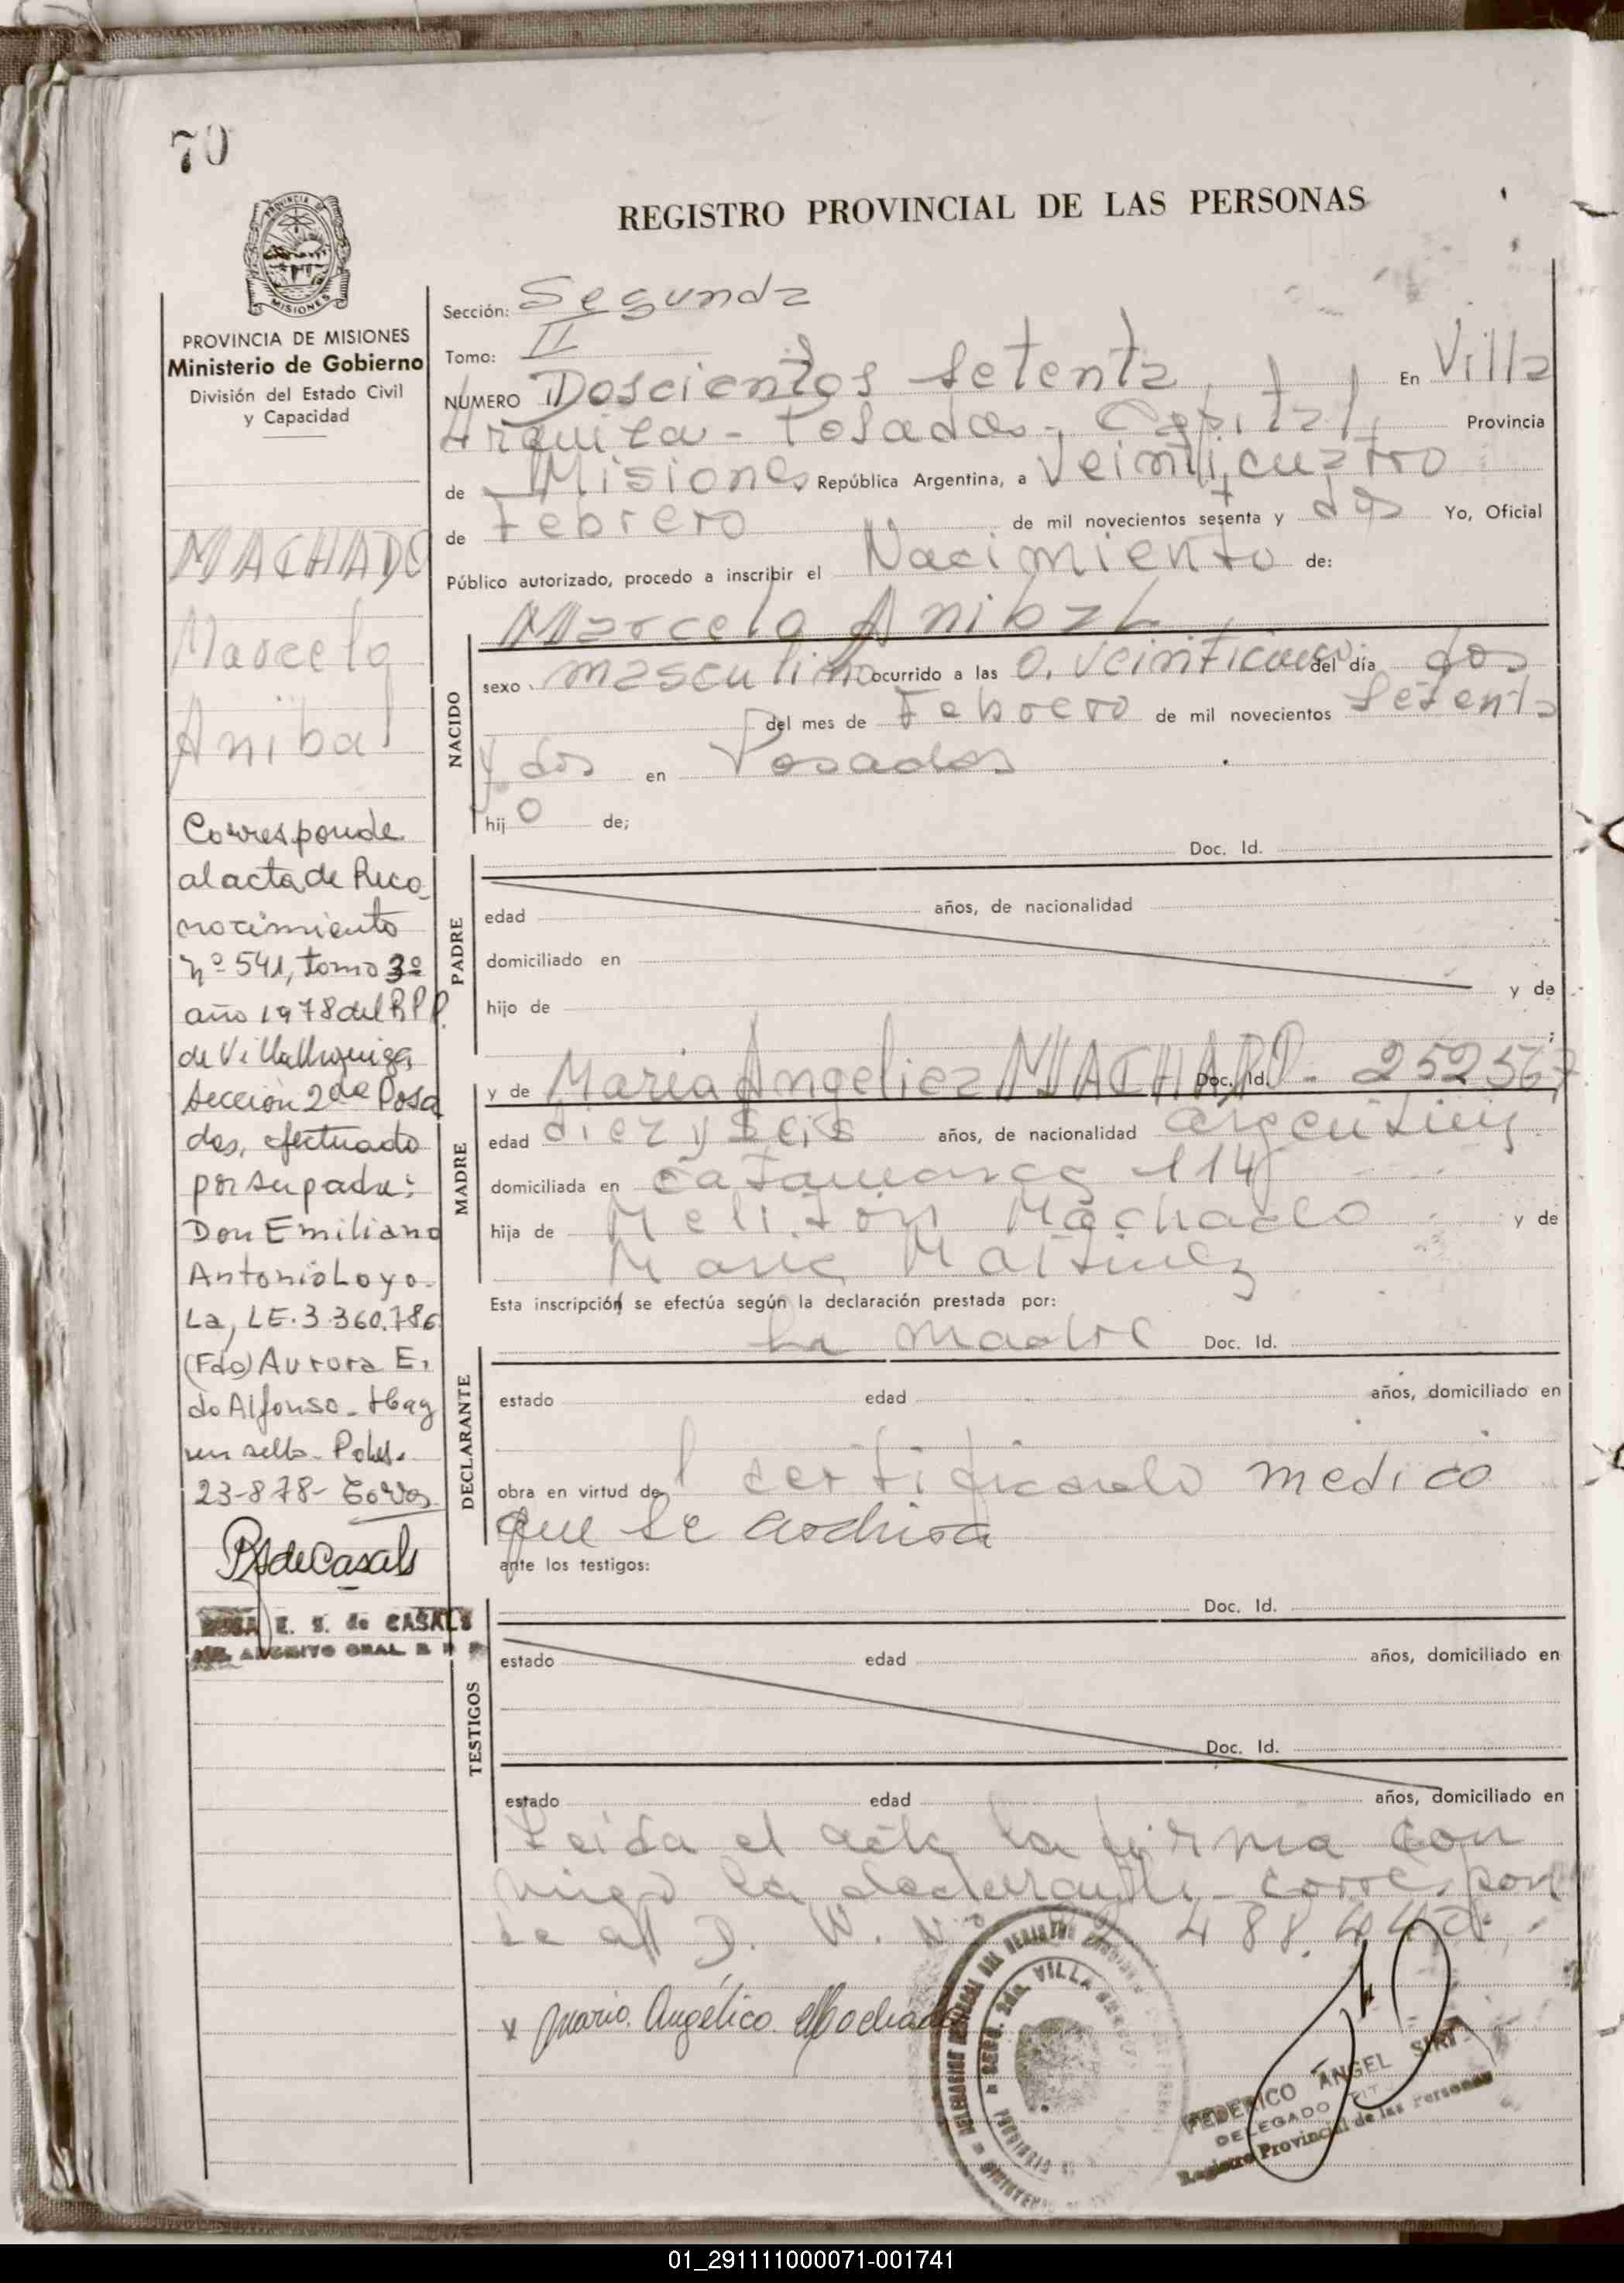 70
REGISTRO PROVINCIAL DE LAS PERSONAS
PROVINCIA DE MISIONES
Ministerio de Gobierno
División del Estado Civil
y Capacidad
MACHADO
Marcelo
Anibal
Corresponde
al acta de Reco
nocimiento
nº 541, tomo 3º
año 1978 del RPP.
de Villa Urquiza,
sección 2da Posa
das, efectuado
por su padre:
Don Emiliano
Antonio Loyo-
La, LE. 3.360.786
(Fdo) Aurora E.
de Alfonso - Hay
un sello - Pdas.
23-8-78-
RSdeCasals
E. S. de CASALS
ARCHIVO GRAL. R P P
Sección: Segunda
Tomo: II
NÚMERO Doscientos setenta En Villa
Urquiza - Posadas - Capital Provincia
de Misiones República Argentina, a Veinticuatro
de Febrero de mil novecientos sesenta y dos Yo, Oficial
Público autorizado, procedo a inscribir el Nacimiento de:
Marcelo Anibal
NACIDO
sexo masculino ocurrido a las 0, veinticinco del día dos
del mes de Febrero de mil novecientos setenta
y dos en Posadas
hijo de;
Doc. Id.
PADRE
edad años, de nacionalidad
domiciliado en
hijo de y de
;
y de Maria Angelica MACHADO - Doc. Id. 252567
MADRE
edad diez y seis años, de nacionalidad argentina
domiciliada en Catamarca 114
hija de Meliton Machado y de
Maria Martinez
Esta inscripción se efectúa según la declaración prestada por:
la madre Doc. Id.
DECLARANTE
estado edad años, domiciliado en
obra en virtud del certificado medico
que se archiva
ante los testigos:
Doc. Id.
TESTIGOS
estado edad años, domiciliado en
Doc. Id.
estado edad años, domiciliado en
Leida el acta la firma con
migo la declarante - correspon
de al D. N. Nº 488.
x Maria Angélica Machado
VILLA
FEDERICO ANGEL
DELEGADO TIT
Registro Provincial de las Personas
01_291111000071-001741